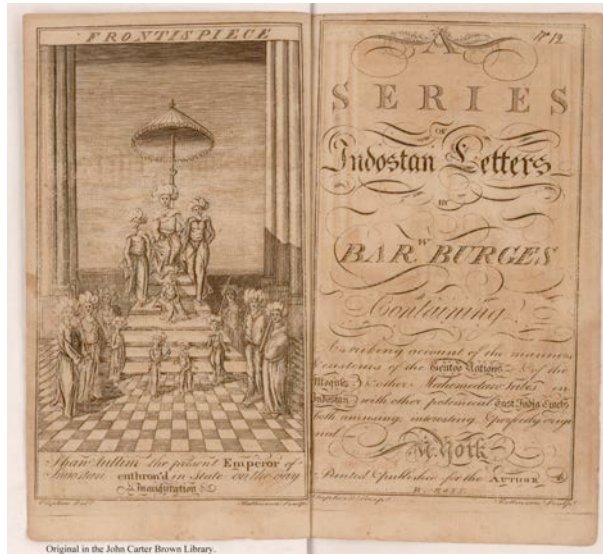 FRONTISPIECE
Shaw Aullim the present Emperor of
Indostan enthron'd in State on the day
of Inauguration
A
Nº 12
SERIES
OF
Indostan Letters
BY
BAR.W BURGES
Containing
A striking account of the manners
& customs of the Gentoo Nations & of the
Moguls & other Mahomedan Tribes in
Indostan with other polemical East India Tracts
both amusing interesting & perfectly origi
nal
N. York
Printed & publish'd for the AUTHOR
by W. ROSS
Original in the John Carter Brown Library.